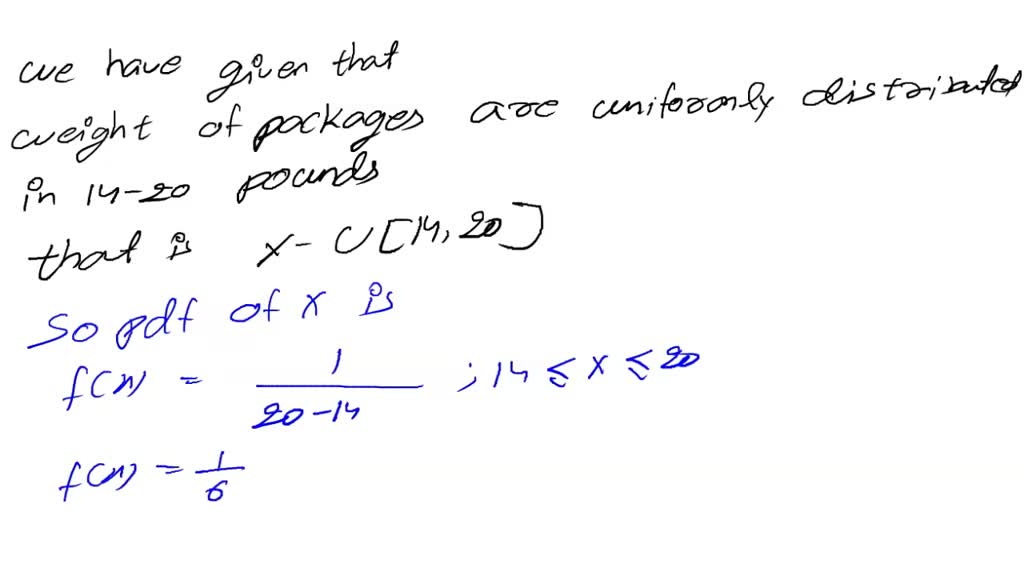 we have given that
weight of packages are uniformly distributed
in 14-20 pounds
that is x - U[14, 20]
So pdf of x is
f(x) = 1/20-14 ; 14 ≤ x ≤ 20
f(x) = 1/6